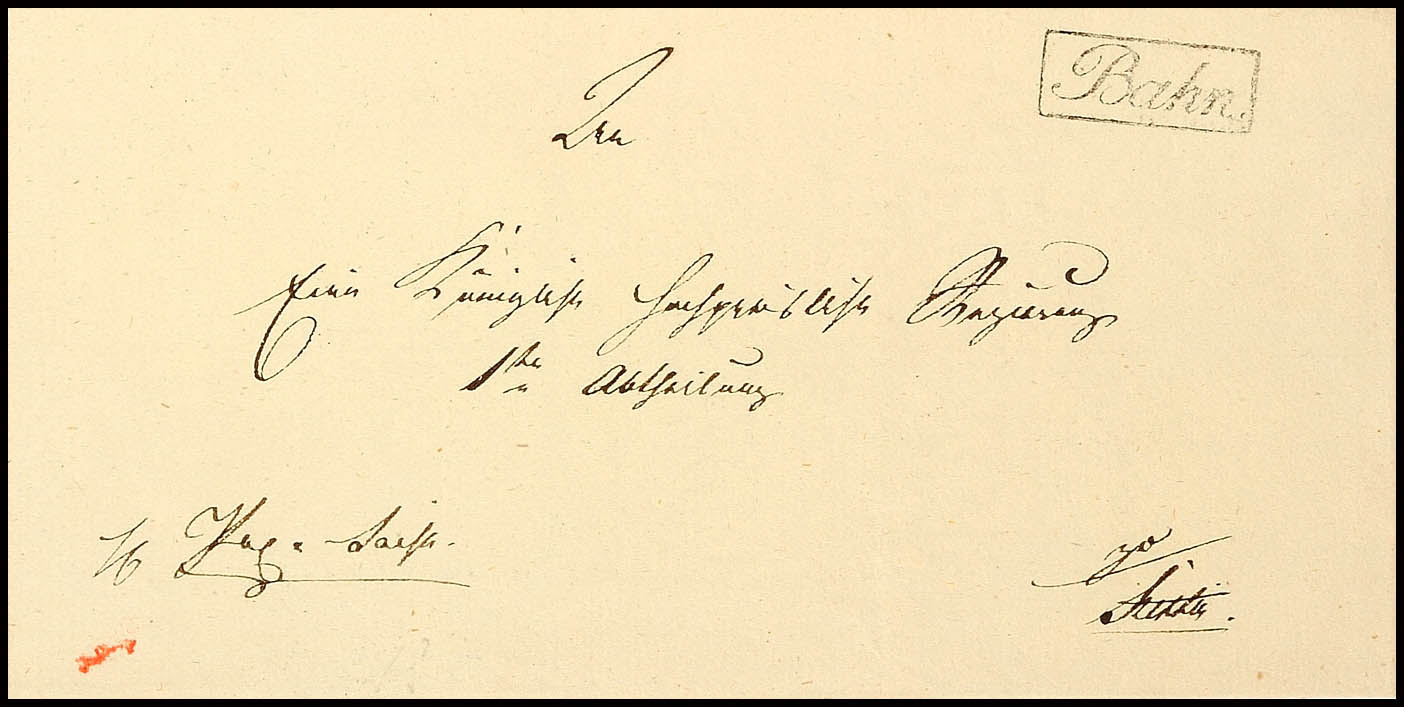 Bahn.
An
Eine Königliche Hochpreisliche Regierung
1te Abtheilung
Sache.
zu
Stettin.